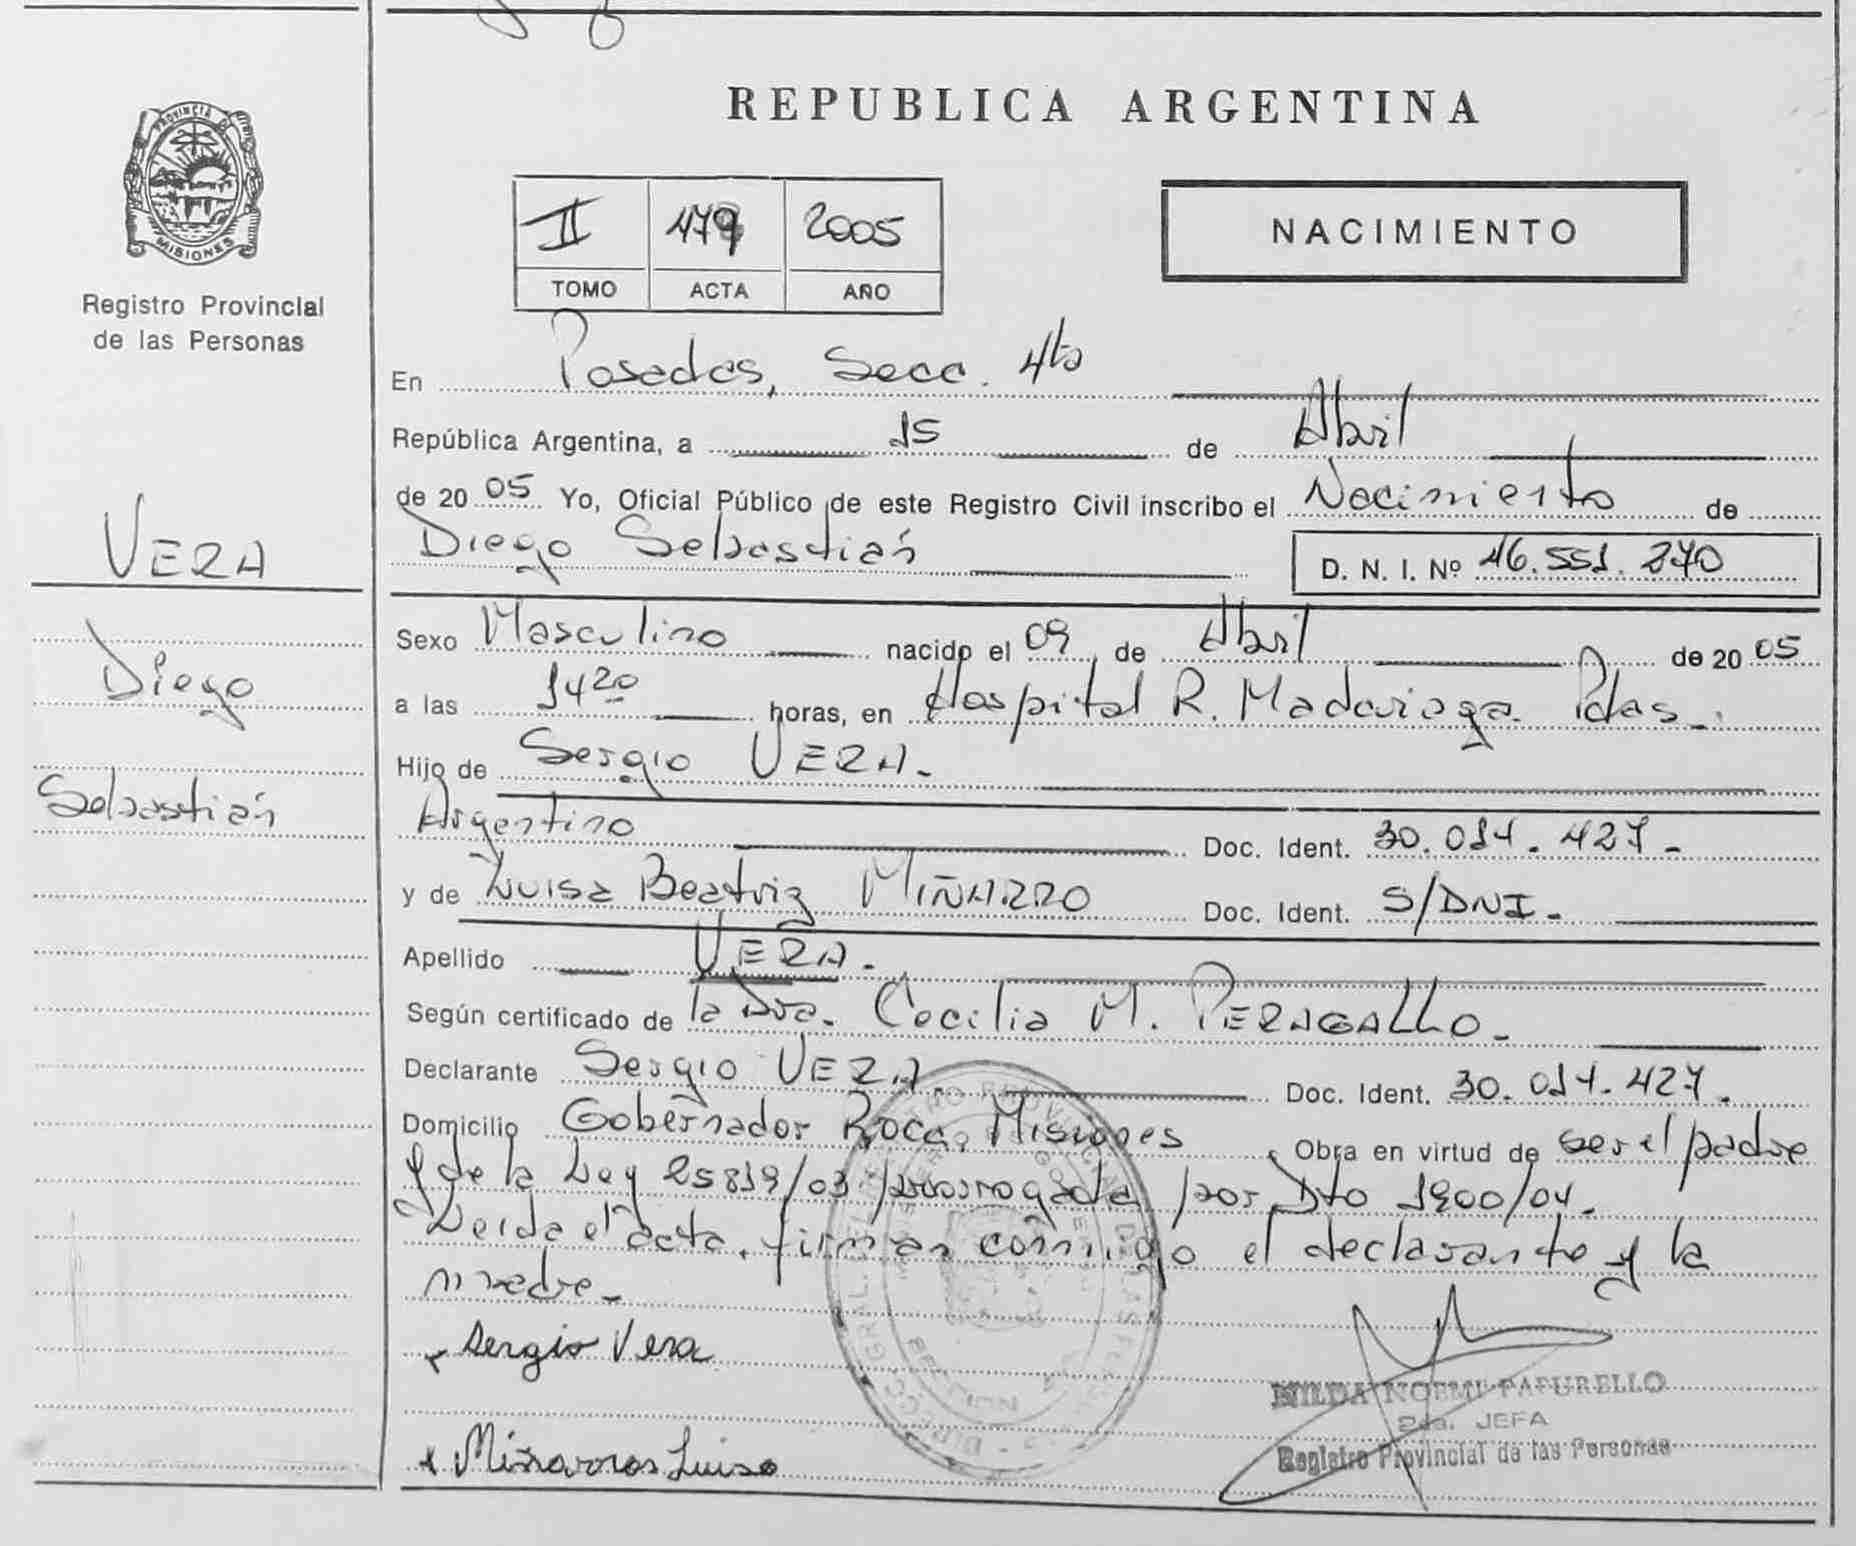 REPUBLICA ARGENTINA
PROVINCIA DE MISIONES
Registro Provincial
de las Personas
II 479 2005
TOMO ACTA AÑO
NACIMIENTO
En Posadas, Secc. 4ta
República Argentina, a 15 de Abril
de 2005 Yo, Oficial Público de este Registro Civil inscribo el Nacimiento de
Diego Sebastián D. N. I. Nº 46.551.270
VERA
Diego
Sebastián
Sexo Masculino nacido el 09 de Abril de 2005
a las 14 20 horas, en Hospital R. Madariaga Pdas.
Hijo de Sergio VERA.
Argentino Doc. Ident. 30.014.427.
y de Luisa Beatriz MIÑARRO Doc. Ident. S/DNI.
Apellido VERA.
Según certificado de la Dra. Cecilia M. PERAGALLO.
Declarante Sergio VERA. Doc. Ident. 30.014.427.
Domicilio Gobernador Roca, Misiones Obra en virtud de ser el padre
y de la Ley 25819/03 prorrogada por Dto 1900/04.
Leida el acta, firman conmigo el declarante y la
madre.
Sergio Vera
Luisa
NOEMI PAPURELLO
2da. JEFA
Registro Provincial de las Personas